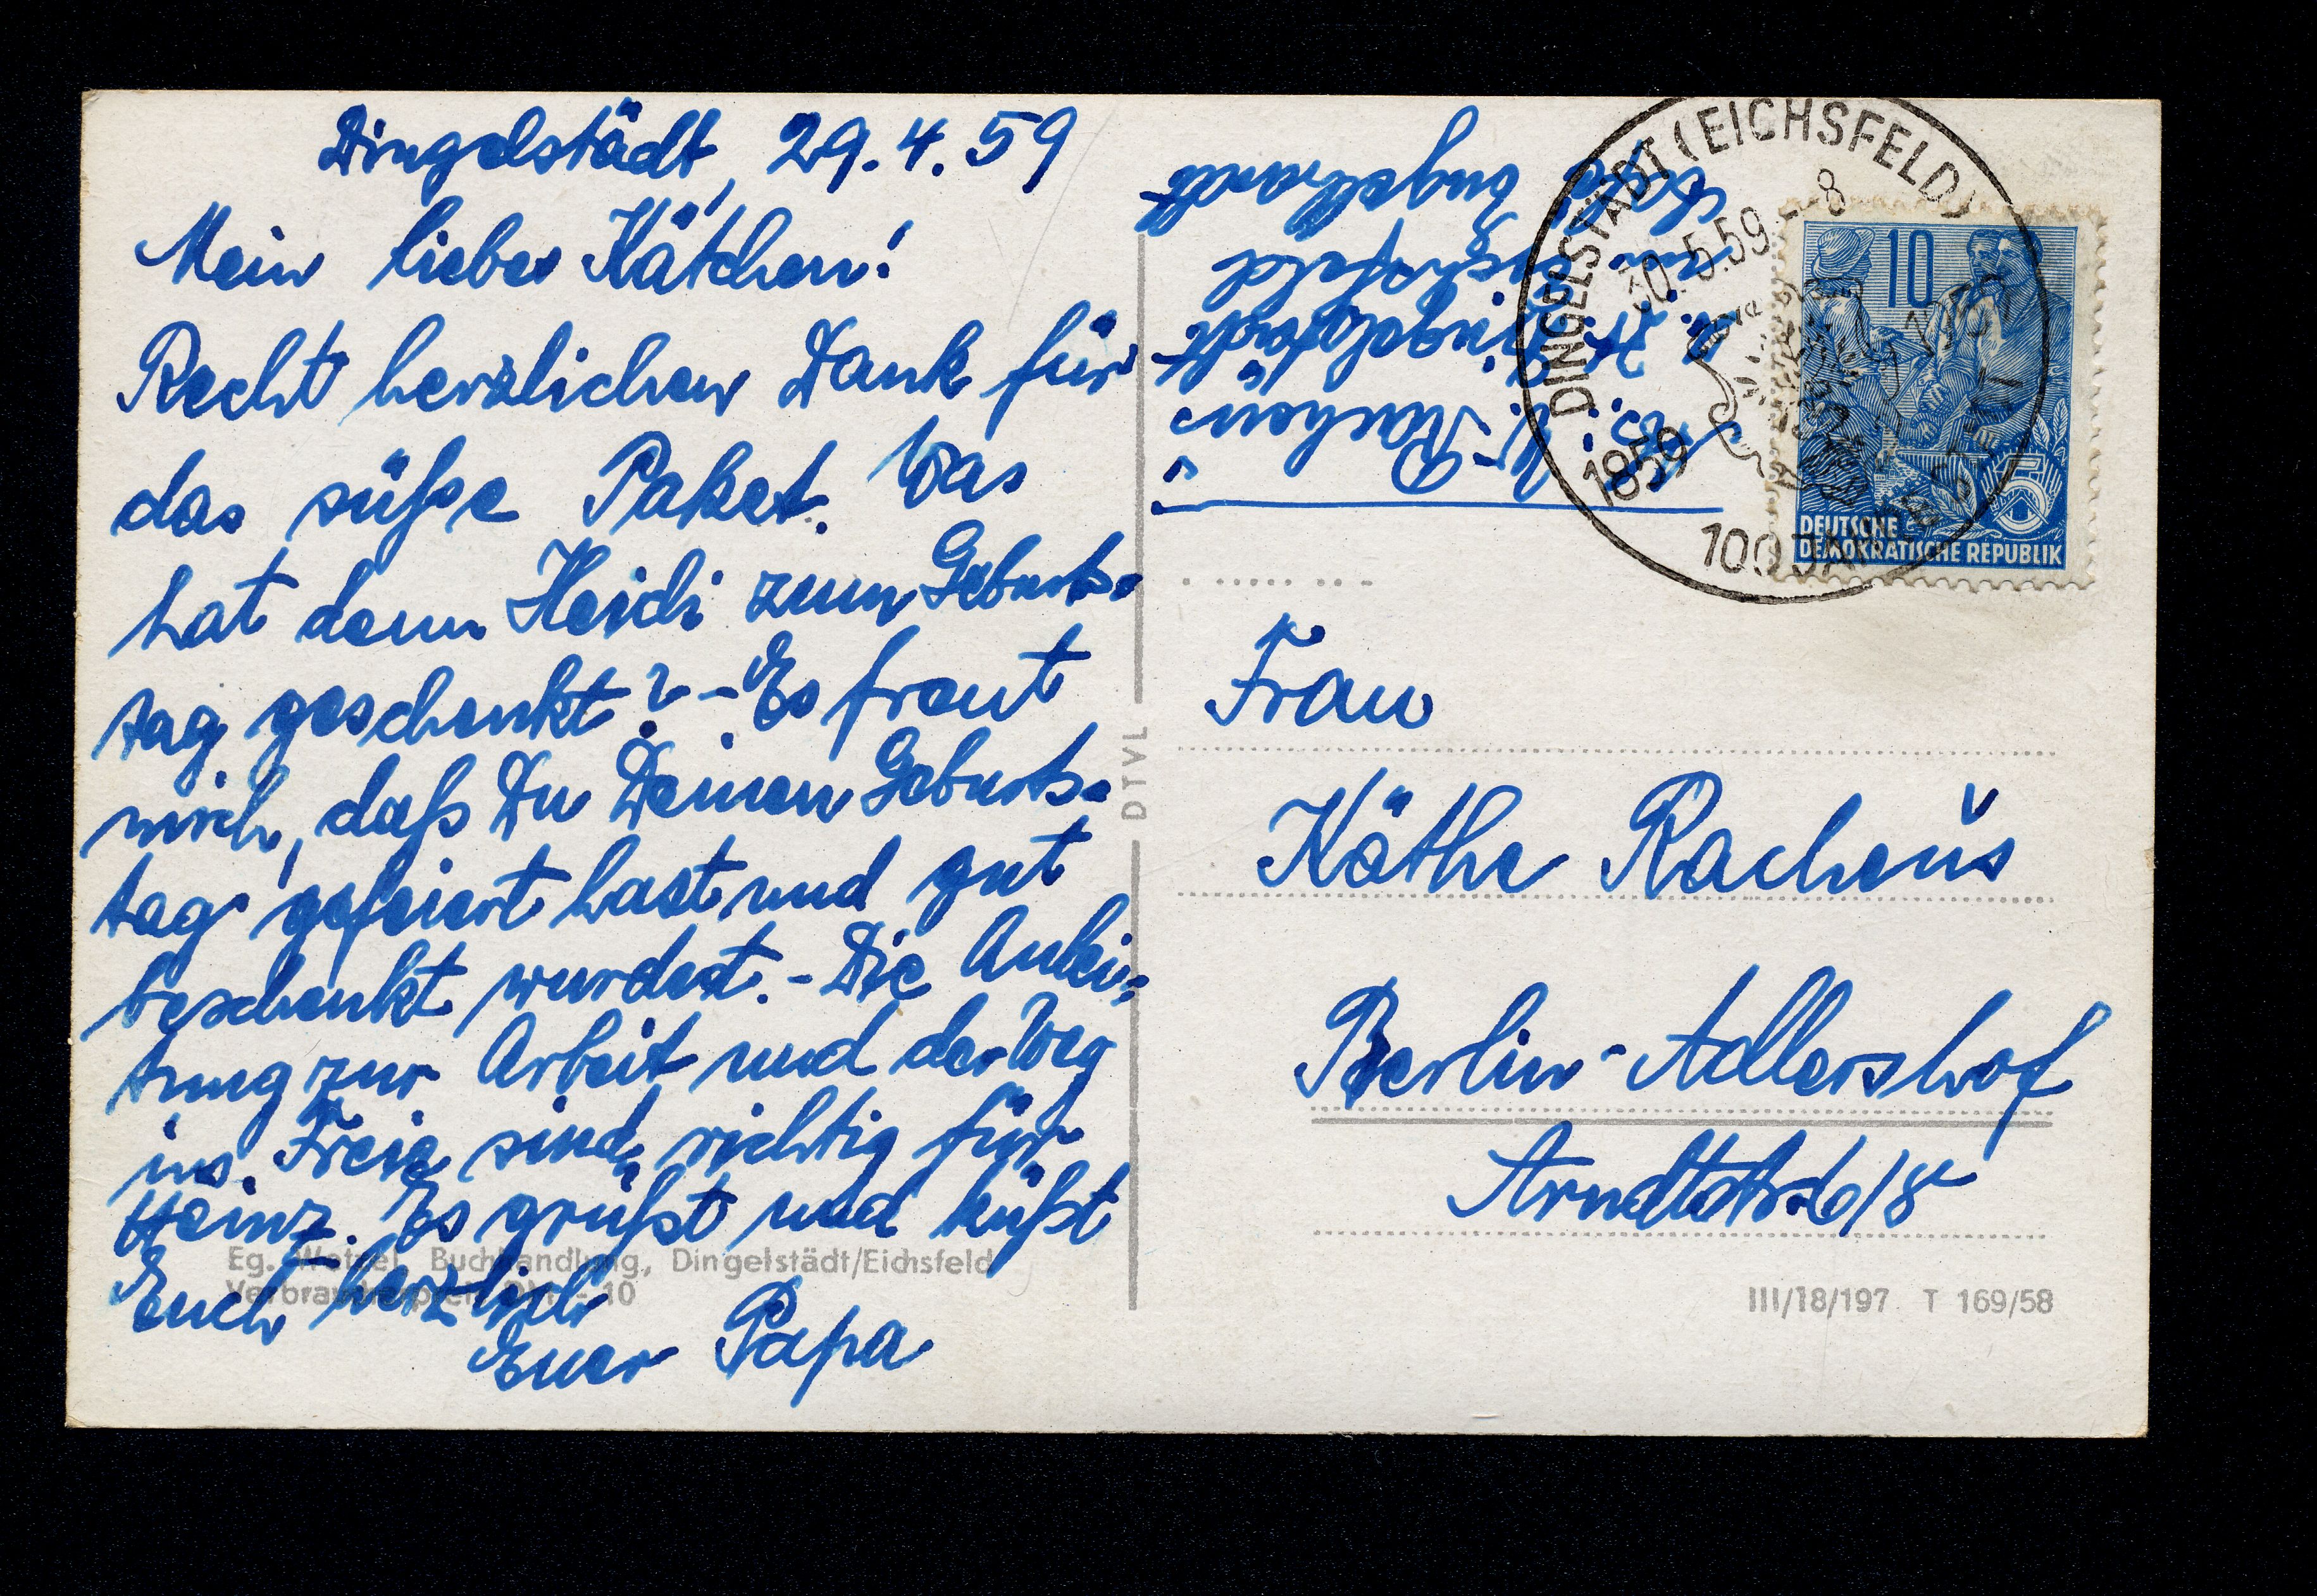 Dingelstädt, 29.4.59
Mein liebes Kätchen!
Recht herzlichen Dank für
das süße Paket. Was
hat denn Heidi zum Geburts-
tag geschenkt? - Es freut
mich, daß Du Deinen Geburts-
tag gefeiert hast und gut
beschenkt wurdest. - Die Anlei-
tung zur Arbeit und der Weg
ins Freie sind richtig für
Heinz. Es grüßt und küßt
Euch herzlich
Euer Papa
Eg. Wetzel, Buchhandlung, Dingelstädt/Eichsfeld
10
DTVL
Dingelstädt
Eichsfeld
DINGELSTÄDT (EICHSFELD)
30.5.59 - 8
1859
100
10
5
DEUTSCHE
DEMOKRATISCHE REPUBLIK
Frau
Käthe Racheus
Berlin-Adlershof
Arndtstr.
III/18/197 T 169/58